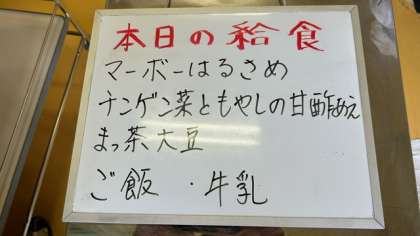 本日の給食
マーボーはるさめ
チンゲン菜ともやしの甘酢あえ
まっ茶大豆
ご飯 ・牛乳